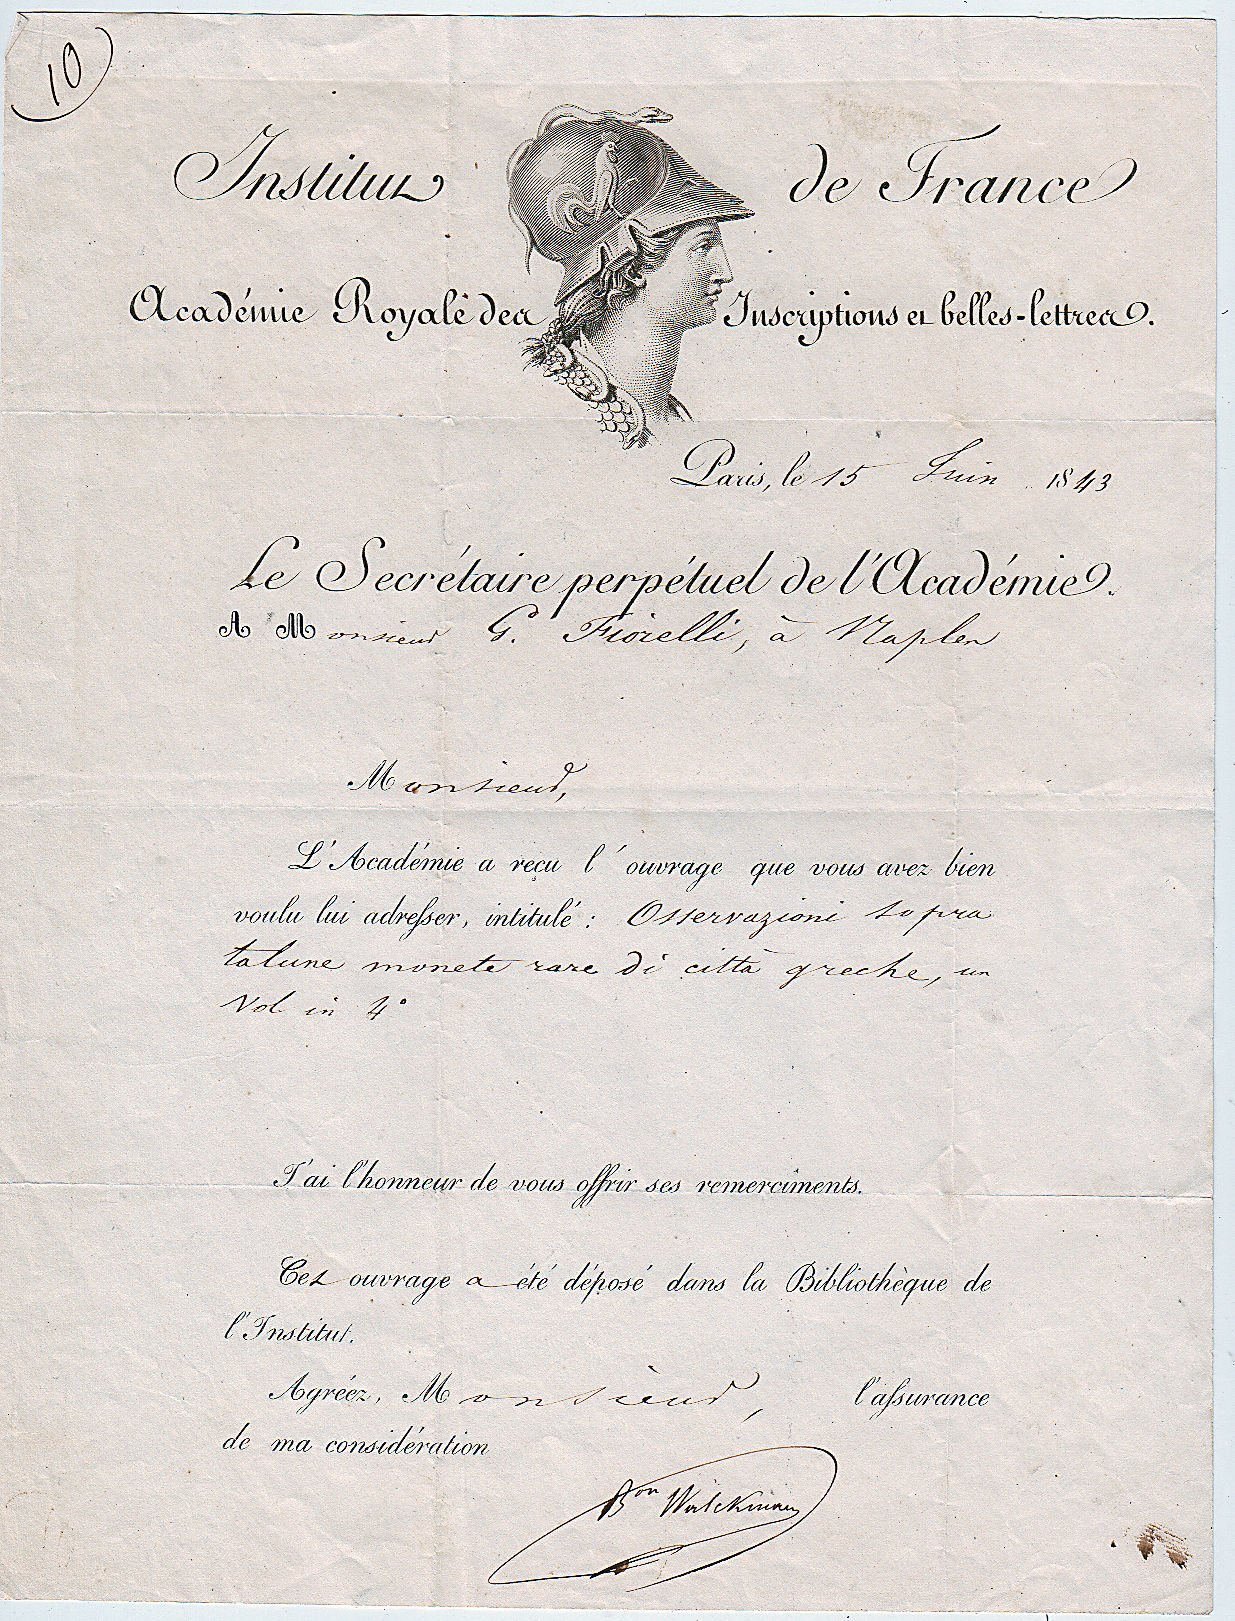 10
Institut de France
Académie Royale des Inscriptions et belles-lettres.
Paris, le 15 Juin 1843
Le Secrétaire perpétuel de l'Académie.
A Monsieur G. Fiorelli, à Naples
Monsieur,
L'Académie a reçu l'ouvrage que vous avez bien
voulu lui adresser, intitulé : Osservazioni sopra
talune monete rare di città greche, un
vol in 4°
J'ai l'honneur de vous offrir ses remercîments.
Cet ouvrage a été déposé dans la Bibliothèque de
l'Institut.
Agréez, Monsieur, l'assurance
de ma considération
Bon Walckenaer